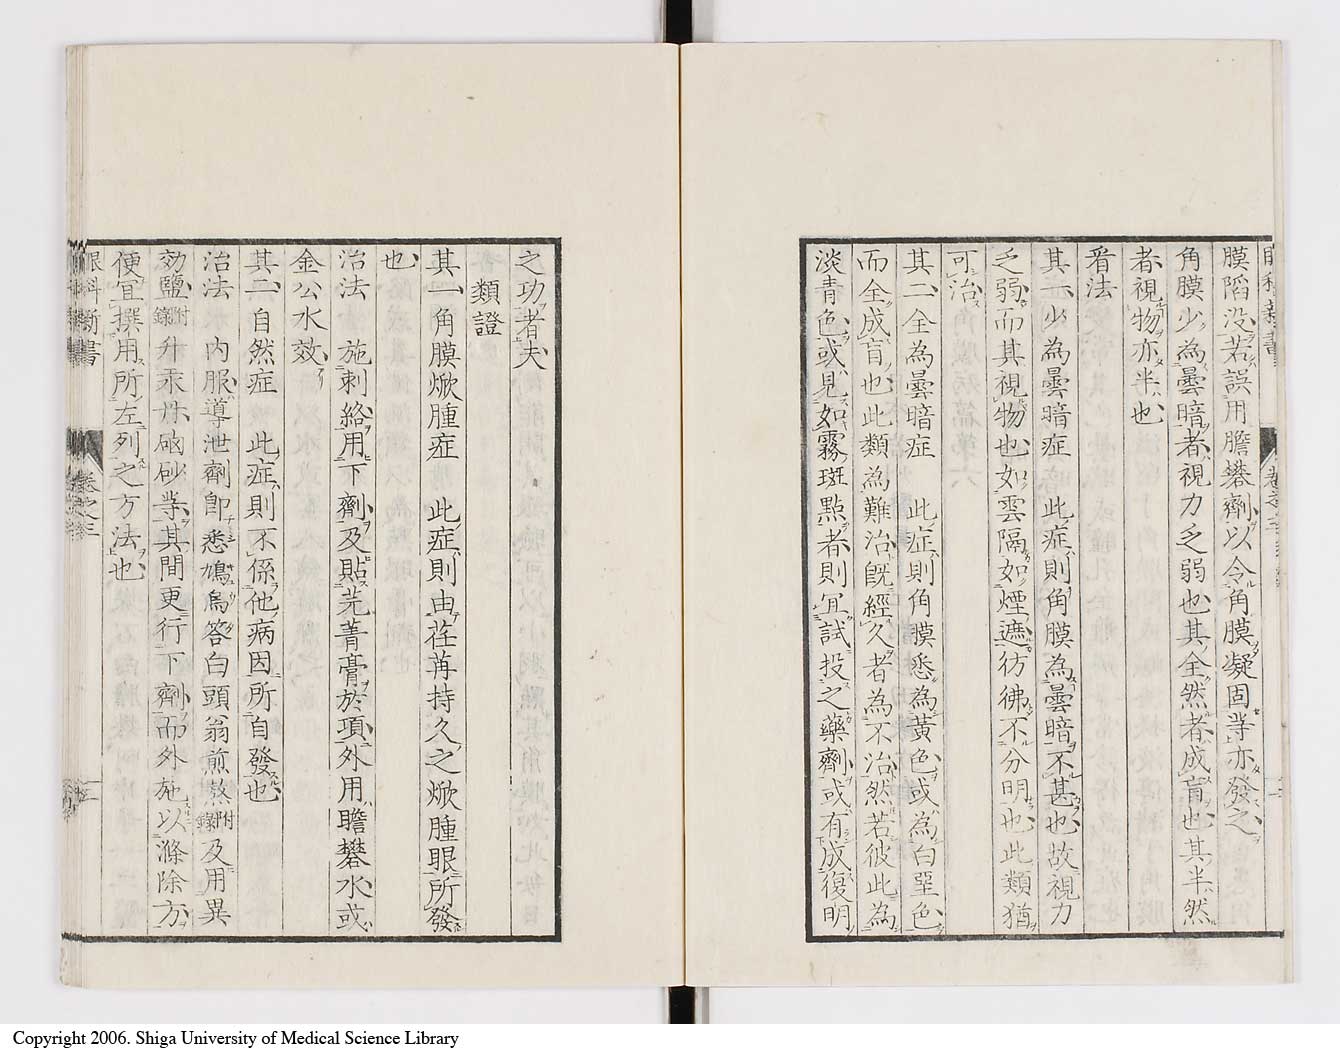 膜陷没若誤用膽礬劑以令角膜凝固等亦發之
角膜少為曇暗者視力乏弱也其全然者成盲也其半然
者視物亦半也
看法
其一少為曇暗症 此症則角膜為曇暗不甚也故視力
乏弱而其視物也如雲隔如煙遮彷彿不分明也此類猶
可治
其二全為曇暗症 此症則角膜悉為黃色或為白堊色
而全成盲也此類為難治既經久者為不治然若彼此為
淡青色或見如霧斑點者則宜試投之藥劑或有成復明
之功者夫
類證
其一角膜焮腫症 此症則由荏苒持久之焮腫眼所發
也
治法 施刺絡用下劑及貼芫菁膏於項外用膽礬水或
金公水效
其二自然症 此症則不係他病因所自發也
治法 內服導泄劑即悉鳩烏答白頭翁煎熬附錄及用異
効鹽附錄升汞硇砂等其間更行下劑而外施以滌除方
便宜撰用所左列之方法也
眼科新書
卷之三
Copyright 2006. Shiga University of Medical Science Library